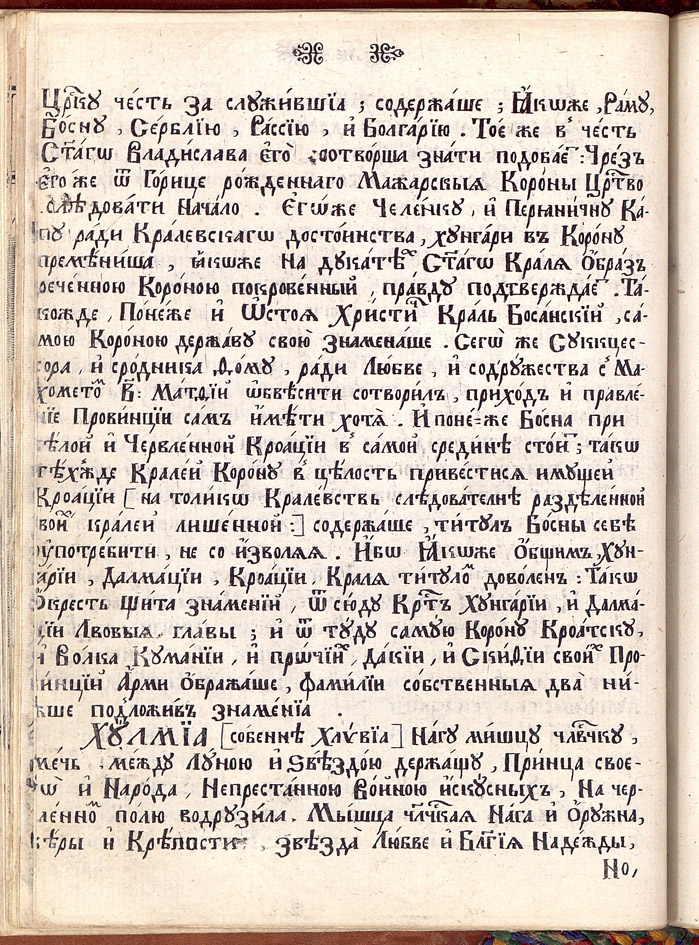 Цр҃скꙋ че́сть за слꙋжи́вшїа ; содержа́ше ; Ꙗ҆́кѡже , Ра́мꙋ,
Бо́снꙋ , Се́рблїю , Ра́ссїю , и҆ Болга́рїю . То́е же в̾ че́сть
Ст҃а́гѡ Влади́слава е҆го̀ сотво́рша зна́ти подоба́е : Чре́зъ
е҆го́же ѿ Го́рице ро́жденнаго Мажа́рскыѧ Коро́ны Цр҃тво
слѣ́довати Нача́ло . Е҆гѡ́же Челе́нкꙋ , и҆ Перꙗни́чнꙋ Ка́-
пꙋ ра́ди Кра́левскагѡ досто́инства , хꙋнга́ри въ Коро́нꙋ
премѣни́ша , ꙗ҆́кѡже на дꙋка́тѣ Ст҃а́гѡ Кра́лѧ О҆́бразъ
рече́нною Коро́ною покрове́нный , пра́вдꙋ подтвержда́е . Та́-
кожде , Поне́же и҆ Ѡ҆сто́ѧ Христи́ Кра́ль Боса́нскїй , са́-
мою Коро́ною держа́вꙋ свою̀ Знамена́ше . Сегѡ̀ же Сꙋкцес-
сора , и҆ сро́дника Ѳ҆́омꙋ , ра́ди Лю́бве , и҆ содрꙋ́жества с̾ Ма-
хомето́ В҃ : Ма́тѳїй ѡ҆бвѣ́сити сотвори́лъ , прихо́дъ и҆ правле́-
нїе Прови́нцїи са́мъ и҆мѣ́ти хотѧ̀ . И҆ поне́-же Бо́сна при
бѣ́лой и҆ Червле́нной Кроа́цїи в̾ само́й среди́нѣ стои́ ; та́кѡ
тѣ́хжде Кра́лей Коро́нꙋ в̾ цѣ́лость приве́стисѧ и҆мꙋ́щей
Кроа́цїи [ на то́ликѡ Кра́левствъ слѣ́дователнѣ раздѣле́нной
свои́ кра́лей лише́нной :] содержа́ше , ти́тꙋлъ Бо́сны себѣ
ᲂу҆потреби́ти , не со и҆зволѧ́ѧ . И҆́бѡ Ꙗ҆́кѡже О҆́бщимъ , Хꙋн-
га́рїи , Далма́цїи , Кроа́цїи , Кра́лѧ ти́тꙋло дово́ленъ : Та́кѡ
О҆́кресть щи́та зна́менїй , ѿ сю́дꙋ Кр҃тъ Хꙋнга́рїи , и҆ Далма́-
цїи Лво́выѧ гла́вы ; и҆ ѿ тꙋ́дꙋ са́мꙋю Коро́нꙋ Кроа́тскꙋ ,
и҆ Во́лка Кꙋма́нїи , и҆ прѡ́чїи , Да́кїи , и҆ Ски́ѳїи свои́ Про-
ви́нцїи А҆́рми О҆бража́ше , фами́лїи со́бственныѧ два̀ ни́-
жше подложи́въ зна́менїа .
ХꙊЛМІ́А [ со́беннѣ Хлꙋ́вїа ] На́гꙋ мы́шцꙋ чл҃вчкꙋ ,
ме́чь . между Лꙋ́ною и҆ Ѕвѣздо́ю держа́щꙋ , При́нца своег-
ѡ̀ и҆ Наро́да , Непреста́нною Во́йною и҆скꙋ́сныхъ , На чер-
ле́нно по́лю водрꙋзи́ла . Мы́шца чл҃чкаѧ На́га и҆ О҆рꙋ́жна ,
вѣ́ры и҆ Крѣ́пости , звѣзда̀ Лю́бве и҆ Бл҃гїѧ Наде́жды ,
Но ,